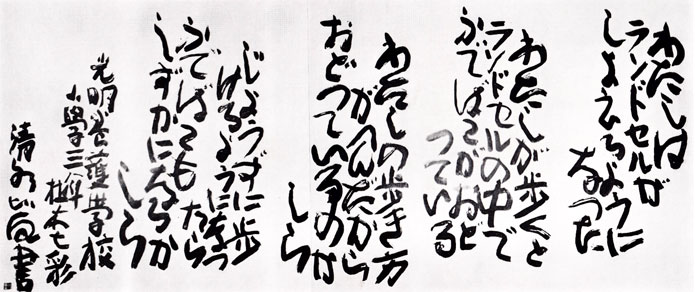 わたしは
ランドセルが
しょえるように
なった
わたしが歩くと
ランドセルの中で
ふでばこがおど
っている
わたしの歩き方
がへんだから
おどっているのか
しら
じょうずに歩
けるようになっ
たら
ふでばこも
しずかになるか
しら
光明養護學校
小學三年
清水
書